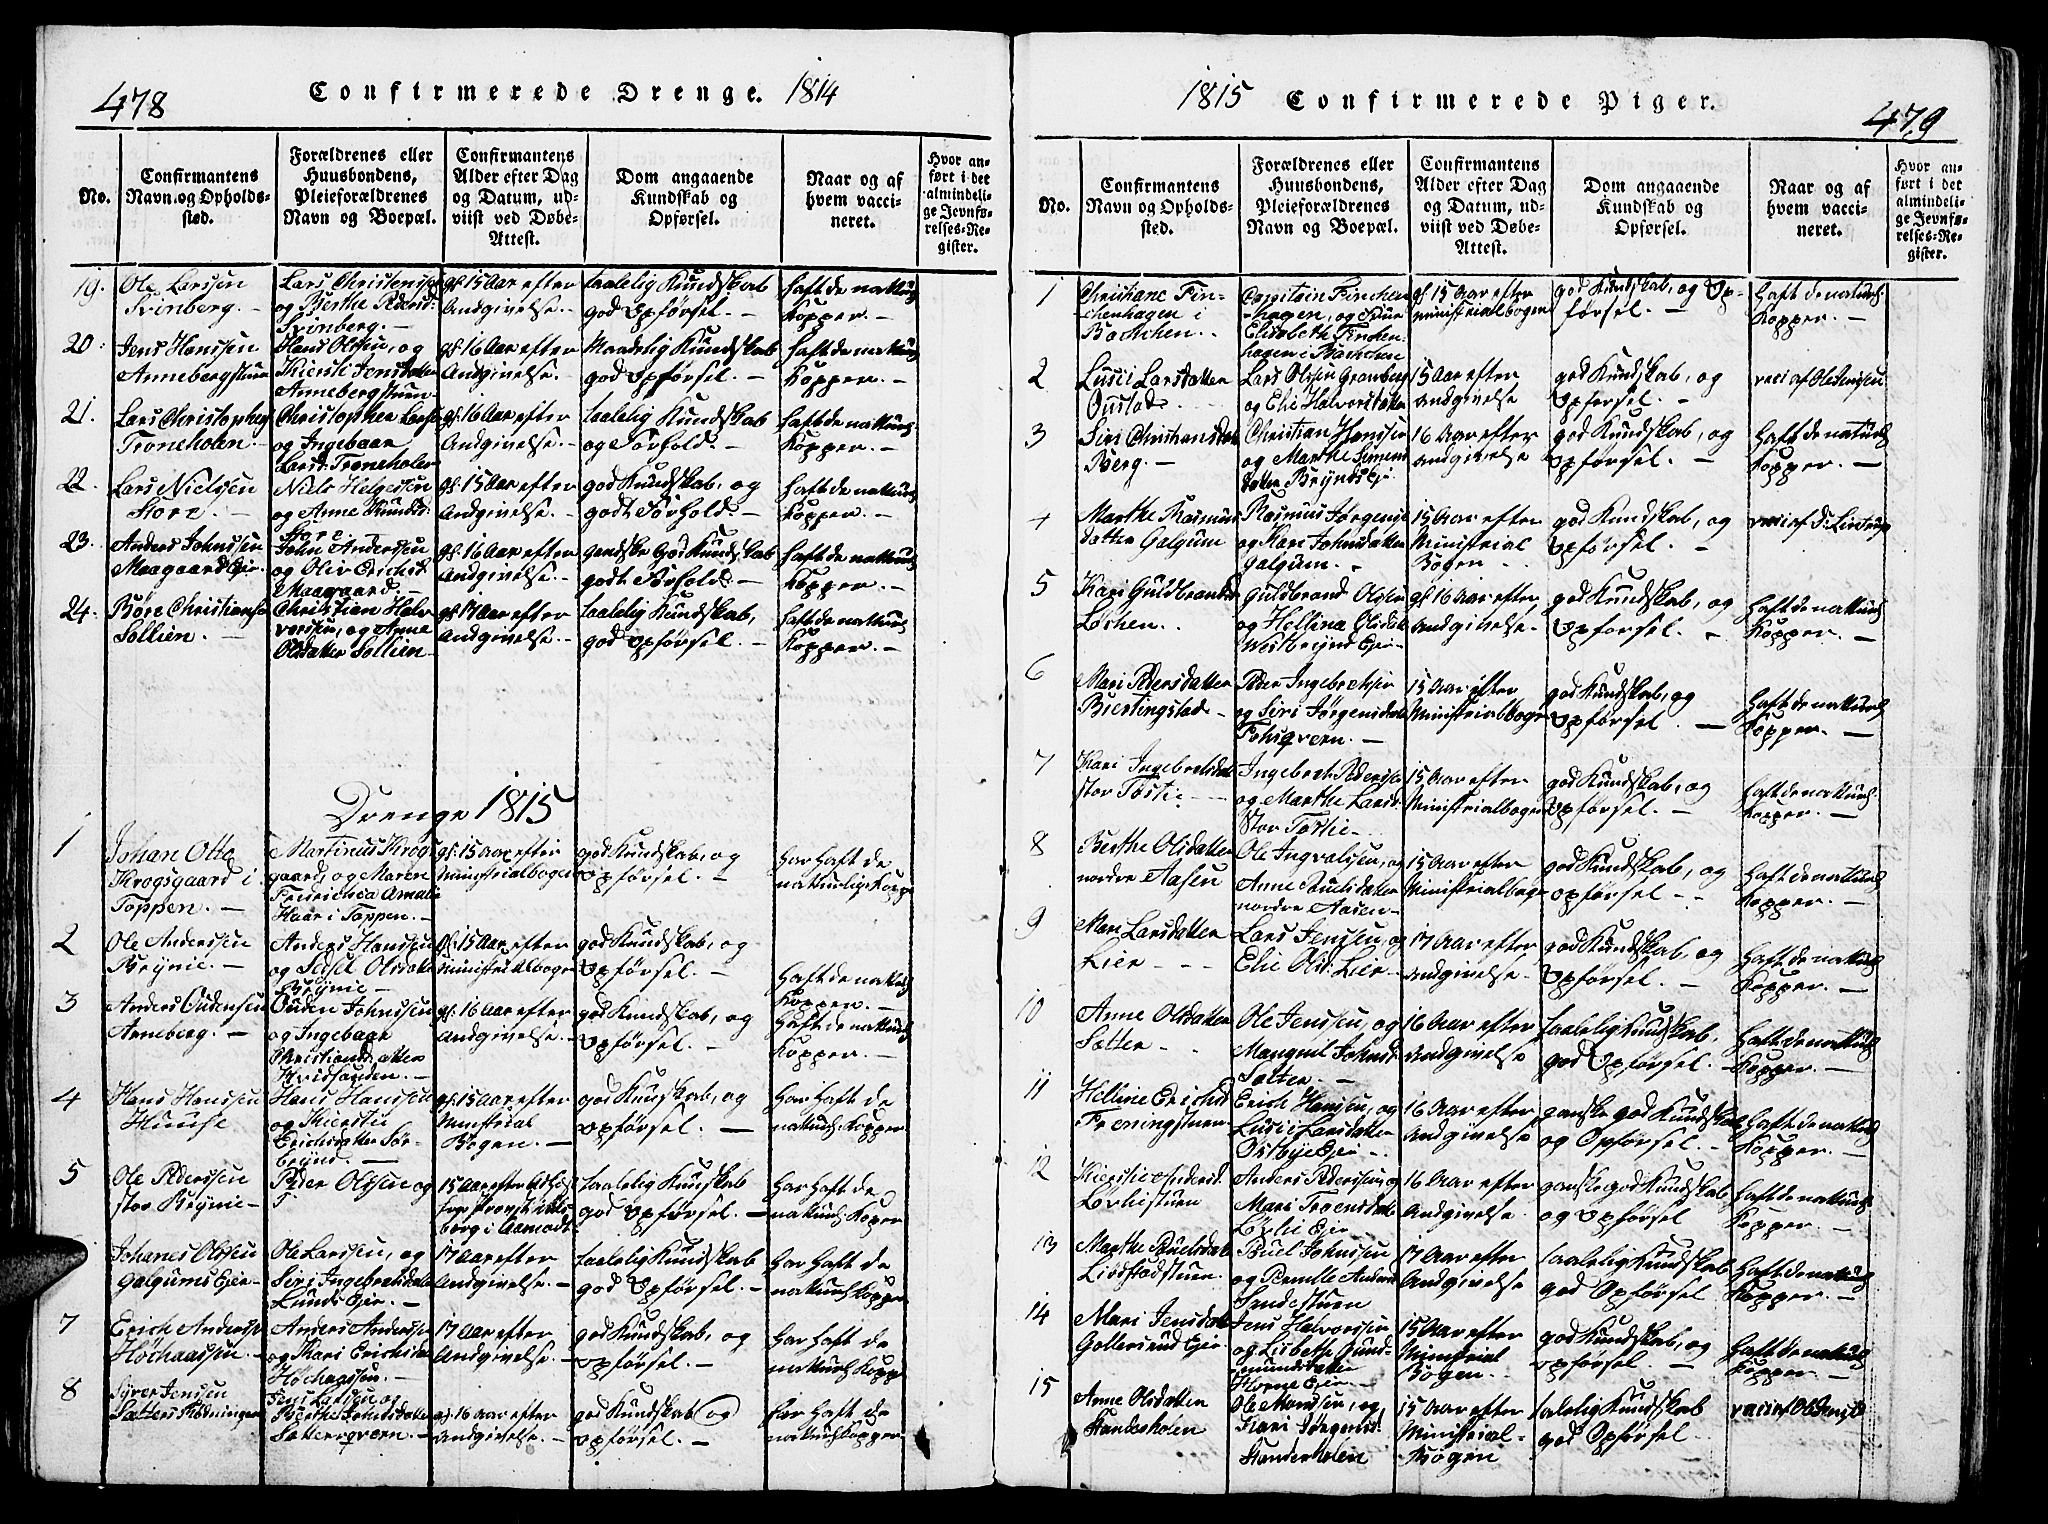 478
Confirmerede Drenge. 1814
No.
Confirmantens
Navn og Opholds-
sted.
Forældrenes eller
Huusbondens,
Pleieforældrenes
Navn og Boepæl.
Confirmantens
Alder efter Dag
og Datum, ud-
viist ved Døbe-
Attest.
Dom angaaende
Kundskab og
Opførsel.
Naar og af
hvem vacci-
neret.
Hvor an-
ført i det
almindeli-
ge Jevnfø-
relses-Re-
gister.
19.
Ole Larssen
Svinberg. -
Lars Christenssen
og Berthe Pedersd:
Svinberg. -
gl. 15 Aar efter
Andgivelse. -
taalelig Kundskab
god Opførsel. -
haft de naturl:
Kopper. -
20.
Jens Hanssen
Annebergstuen
Hans Olssen, og
Kiersti Jensdatter
Annebergstuen
gl. 16 Aar efter
Andgivelse. -
Maadelig Kundskab
god Opførsel. -
haft de naturl:
Kopper. -
21.
Lars Christophers
Troneholen. -
Christopher Larss
og Ingebaar
Larsd: Troneholen
gl. 16 Aar efter
Andgivelse. -
taalelig Kundskab
og Forhold. -
haft de naturl:
Kopper. -
22.
Lars Nielssen
Store. -
Niels Helgessen
og Anne Knudsd:
Store -
gl. 15 Aar efter
Andgivelse. -
god Kundskab, og
godt Forhold. -
haft de naturl:
Kopper. -
23.
Anders Johnssen
Maagaard Eje. -
John Andersen
og Oliv Erichsd:
Maagaard. -
gl. 16 Aar efter
Andgivelse. -
gandske god Kundskab
godt Forhold. -
haft de naturl:
Kopper. -
24.
Børe Christianse
Sollien. -
Christian Halv
vorssen, og Anne
Olsdatter Sollien -
gl. 17 Aar efter
Andgivelse. -
taalelig Kundskab,
god Opførsel. -
haft de naturl:
Kopper. -
Drenge 1815
1
Johan Otto
Krogsgaard i
Toppen. -
Martinus Krogs
gaard, og Maren
Fredericica Amalie
Haar i Toppen. -
gl. 15 Aar efter
Ministrialbogen
god Kundskab, og
Opførsel. -
har haft de
naturlige Kopp
2
Ole Anderssen
Brynie. -
Anders Hanssen
og Sidsel Olsdatte
Brynie -
gl. 15 Aar efter
Ministrialbogen
god Kundskab, og
Opførsel. -
haft de naturl:
Kopper. -
3
Anders Oudenssen
Anneberg. -
Ouden Johnssen
og Ingebaar
Christiansdatter
Kvidsanden. -
gl. 16 Aar efter
Andgivelse. -
god Kundskab, og
Opførsel. -
haft de naturl:
Kopper. -
4
Hans Hanssen
Huuse
Hans Hanssen
og Kierstie
Erichsdatter Sør-
Brynd. -
gl. 15 Aar efter
Ministrial
Bogen. -
god Kundskab, og
Opførsel. -
har haft de
naturl: Kopper
5
Ole Pederssen
stor Brynie -
Peder Olssen og
15 Aar efter
berg i Aamodt
taalelig Kundskab
god Opførsel. -
har haft de
naturl: Koper
Johanes Olssen
Galgums Eje -
Ole Larssen, og
Siri Ingebretsdatte
Lunds Eje. -
17 Aar efter
Andgivelse. -
taalelig Kundskab
god Opførsel. -
har haft de
naturl: Kopper
7
Erich Anderss
Høchaassen. -
Anders Anderss
og Kari Erichsdat
Høchaassen. -
17 Aar efter
Andgivelse. -
god Kundskab, og
Opførsel. -
har haft de
naturl: Kopp
8
Syver Jenssen
Jens Larssen og
Berthe Johnsdatter
Sætterqværn. -
gl. 16 Aar efter
Andgivelse. -
god Kundskab og
Opførsel. -
har haft de
naturl: Kopper
1815 Confirmerede Piger.
479
No.
Confirmantens
Navn og Opholds-
sted.
Forældrenes eller
Huusbondens,
Pleieforældrenes
Navn og Boepæl.
Confirmantens
Alder efter Dag
og Datum, ud-
viist ved Døbe-
Attest.
Dom angaaende
Kundskab og
Opførsel.
Naar og af
hvem vacci-
neret.
Hvor an-
ført i det
almindeli-
ge Jevnfø-
relses-Re-
gister.
1
Christiane Fin-
chenhagen i
Bachchen. -
Capitain Finchen
hagen, og Frue
Elisabeth Finchen-
hagen i Bachchen
gl. 15 Aar efter
Ministrialbogen
god Kundskab, og Op-
førsel. -
haft de naturl:
Kopper. -
2
Lusie Larsdatter
Onstad.
Lars Olssen Granberg
og Elie Halvorsdatter
15 Aar efter
Andgivelse
god Kundskab, og
Opførsel. -
vaci af Ole Jenssen
3
Siri Christiansdat
Berg. -
Christian Hanssen
og Marthe Simens
datter Brynds Eje
16 Aar efter
Andgivelse
god Kundskab, og
Opførsel. -
haft de naturl:
Kopper. -
4
Marthe Rasmus
datter Galgum
Rasmus Jørgense
og Kari Johnsdatter
Galgum. -
15 Aar efter
Ministrial
Bogen -
god Kundskab, og
Opførsel. -
5
Kari Guldbrandsd
Løchen.
Guldbrand Olssen
og Hellina Olsdat
Westbrynd Eje -
gl. 16 Aar efter
Andgivelse -
god Kundskab, og
Opførsel. -
haft de naturl:
Kopper. -
6
Mari Pedersdatter
Biertingstad -
Peder Ingebretsse
og Siri Jørgensdat
Fohsqvern. -
15 Aar efter
Ministrialbogen
god Kundskab, og
Opførsel. -
haft de naturl:
Kopper. -
7
Kari Ingebretsdat
stor Tøstie -
Ingebret Pederssen
og Marthe Larsd:
Stor Tøstie -
15 Aar efter
Ministrialbogen
god Kundskab, og
Opførsel. -
haft de naturl:
Kopper. -
8
Berthe Olsdatter
nordre Aasen
Ole Ingvalssen, og
Anne Buelsdatter
nordre Aasen -
15 Aar efter
Ministrialbogen
god Kundskab, og
Opførsel. -
haft de naturl:
Kopper. -
9
Mari Larsdatter
Lier - -
Lars Jenssen, og
Elie Olsd: Lier -
17 Aar efter
Andgivelse -
god Kundskab, og
Opførsel. -
haft de naturl:
Kopper. -
10
Anne Olsdatter
Sætter -
Ole Jenssen, og
Mangnil Johnsd
Sætter. -
16 Aar efter
Andgivelse
taalelig Kundskab,
god Opførsel. -
haft de naturl:
Kopper. -
11
Helline Erichsd
Freningstuen
Erich Hanssen, og
Lusie Larsdatter
Østbye Eje -
16 Aar efter
Andgivelse
ganske god Kundskab
og Opførsel. -
haft de naturl:
Kopper. -
12
Kierstie Andersd:
Løvliestuen
Anders Pederssen, og
Mari Troensdatter
Løvlie Eje -
16 Aar efter
Andgivelse.
ganske god Kundskab
og Opførsel
haft de naturl:
Kopper. -
13
Marthe Buelsdat
Lisdstadstuen.
Buel Johnssen
og Pernille Andersd
Sandestuen
17 Aar efter
Andgivelse
taalelig Kundskab
god Opførsel
haft de naturl:
Kopper. -
14
Mari Jensdat
Gollersrud Eje
Jens Halvorssen
og Lisbeth Gund
mundsdatter
Horne Eje -
15 Aar efter
Ministrial
Bogen.
god Kundskab, og
Opførsel. -
haft de naturl:
Kopper. -
15
Anne Olsdatter
Standerholen
Ole Monssen, og
Kari Jørgensd:
Standerholen
15 Aar efter
Ministrial-
Bogen
taalelig Kundskab
god Opførsel.